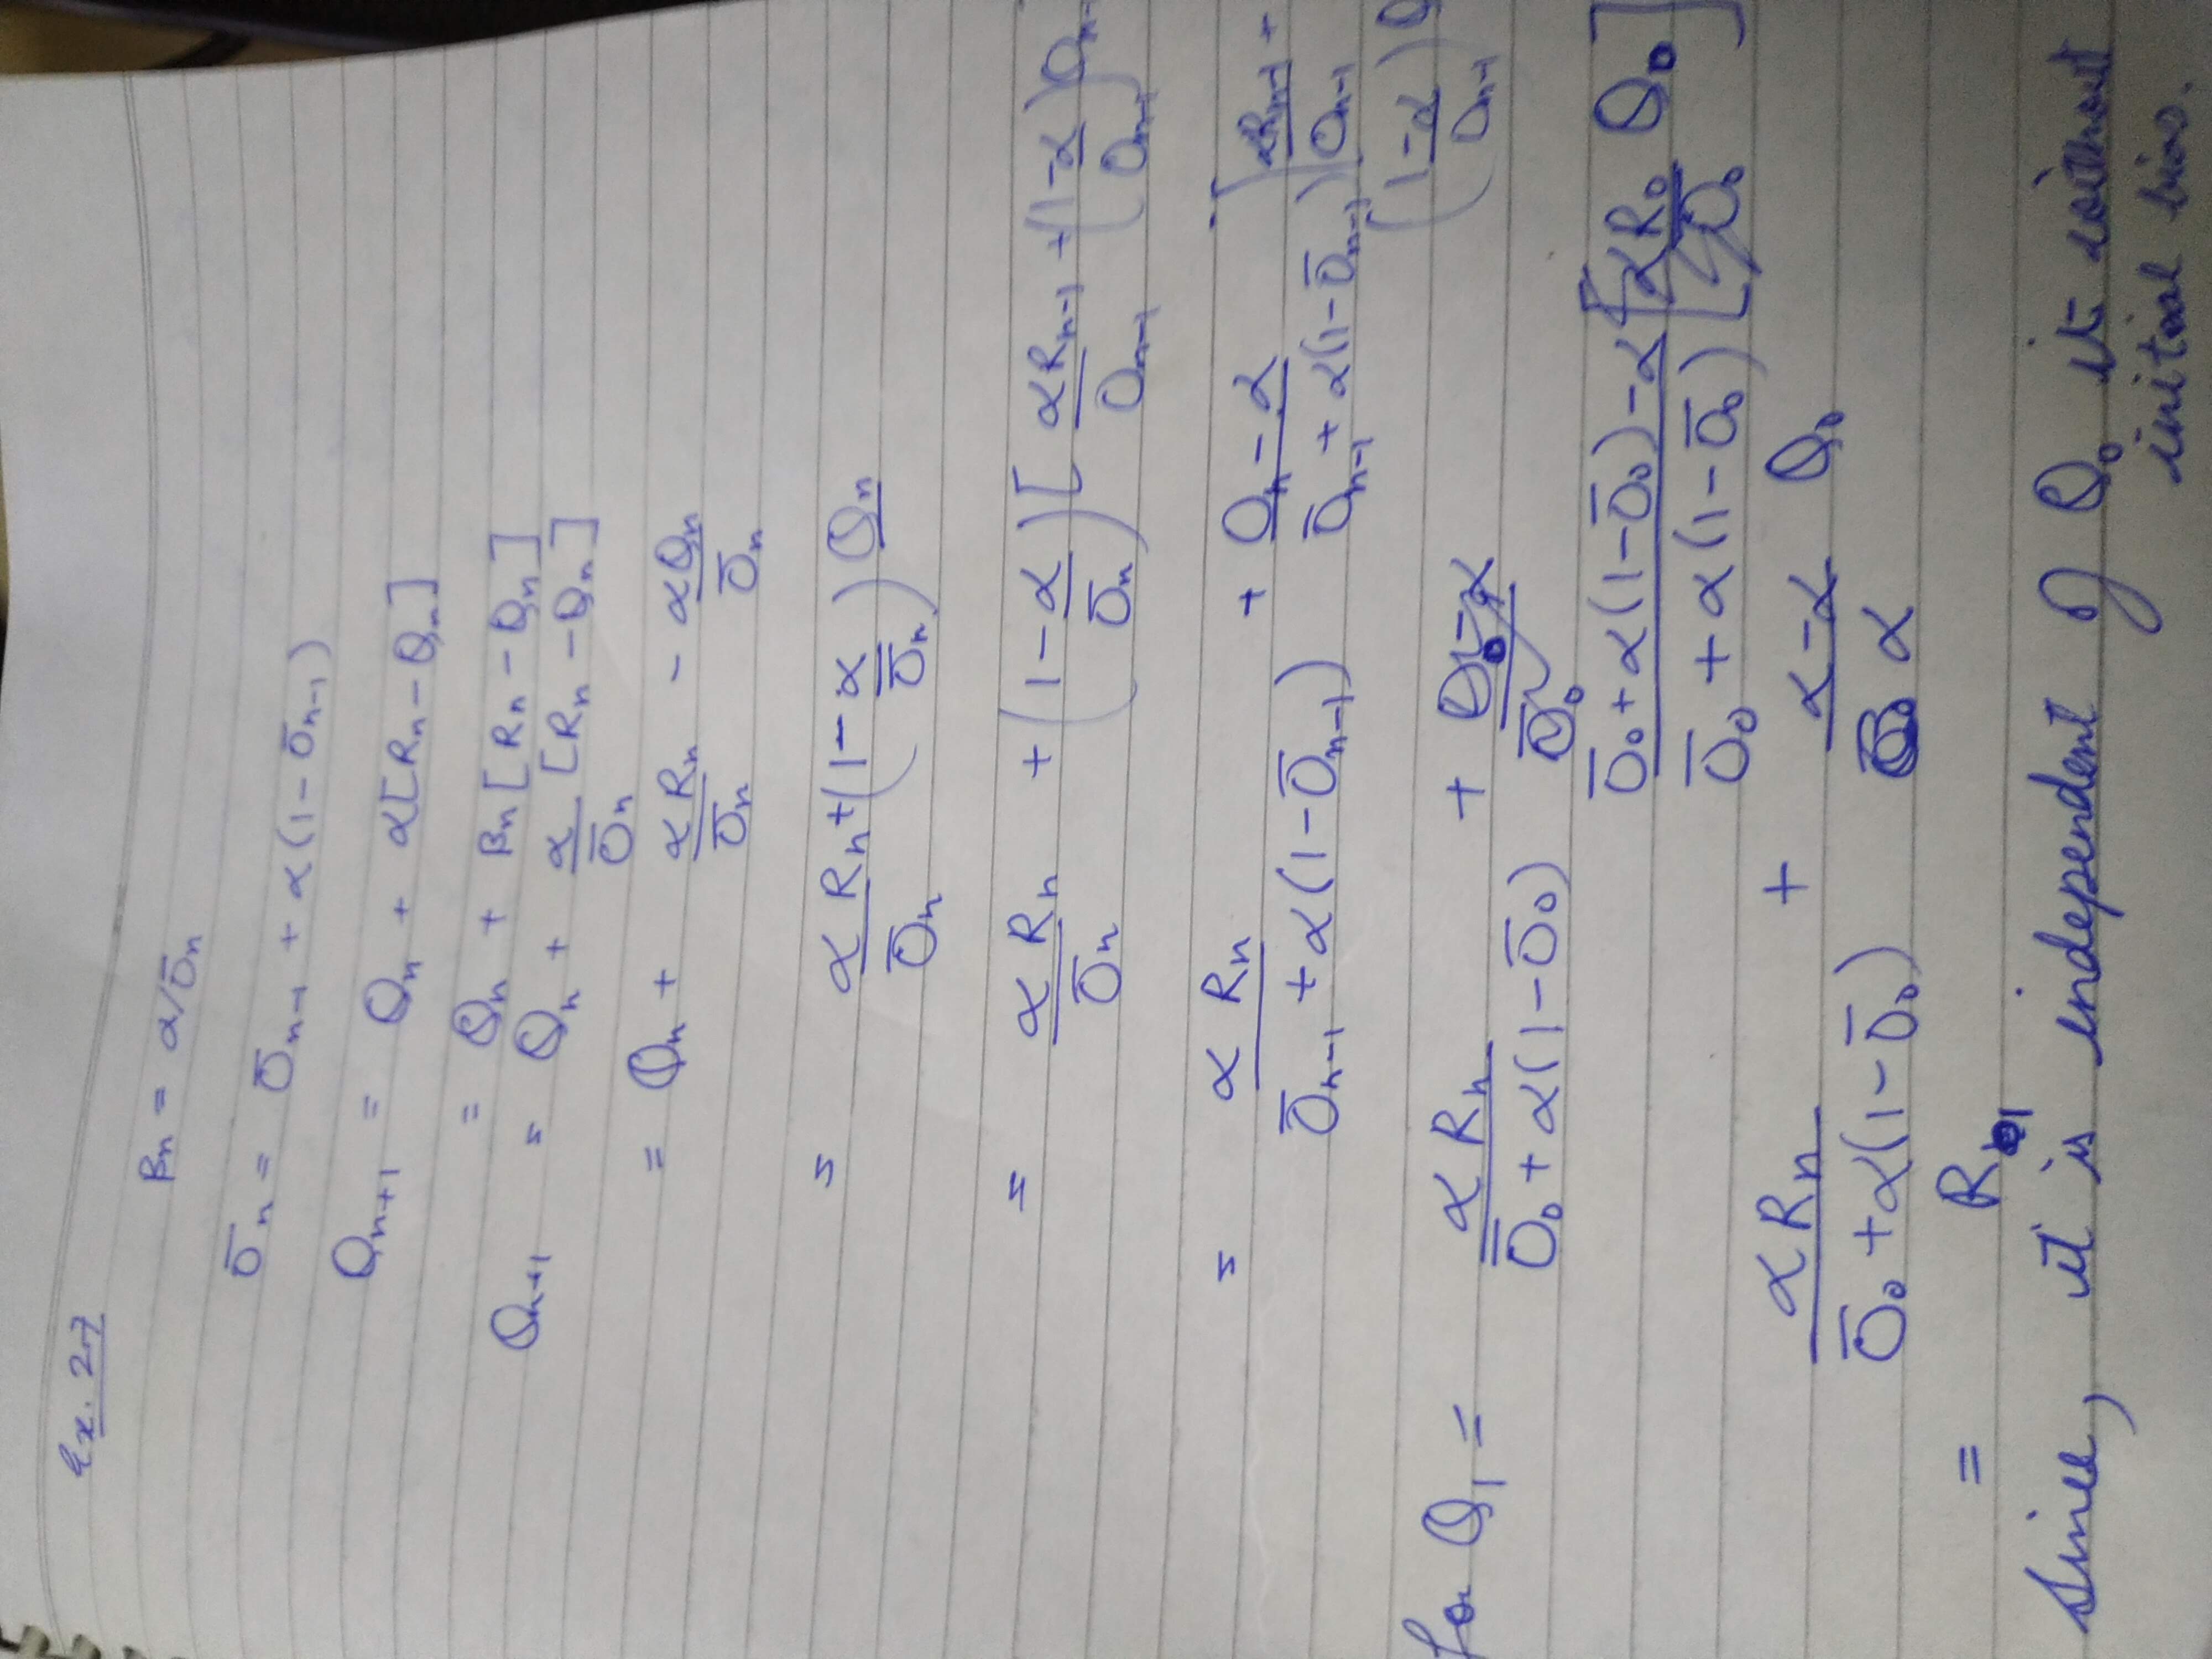 Ex. 2.7
βn = α/Ōn
Ōn = Ōn-1 + α(1-Ōn-1)
Qn+1 = Qn + α[Rn - Qn]
= Qn + βn[Rn - Qn]
Qn+1 = Qn + α/Ōn [Rn - Qn]
= Qn + αRn/Ōn - αQn/Ōn
= αRn/Ōn + (1 - α/Ōn) Qn
= αRn/Ōn + (1 - α/Ōn) [αRn-1/On-1 + (1 - α/On-1) Qn-
= αRn/(Ōn-1 + α(1-Ōn-1)) + (On - α)/(Ōn-1 + α(1-Ōn-1)) [αRn-1/On-1 +
(1 - α/On-1) Q
for Q1 = αRn/(Ō0 + α(1-Ō0)) +
(Ō0 + α(1-Ō0) - α)/(Ō0 + α(1-Ō0)) [Q0]
αRn/(Ō0 + α(1-Ō0)) + (α-α)/α Q0
= R1
Since, it is independent of Q0 it without
initial bias.